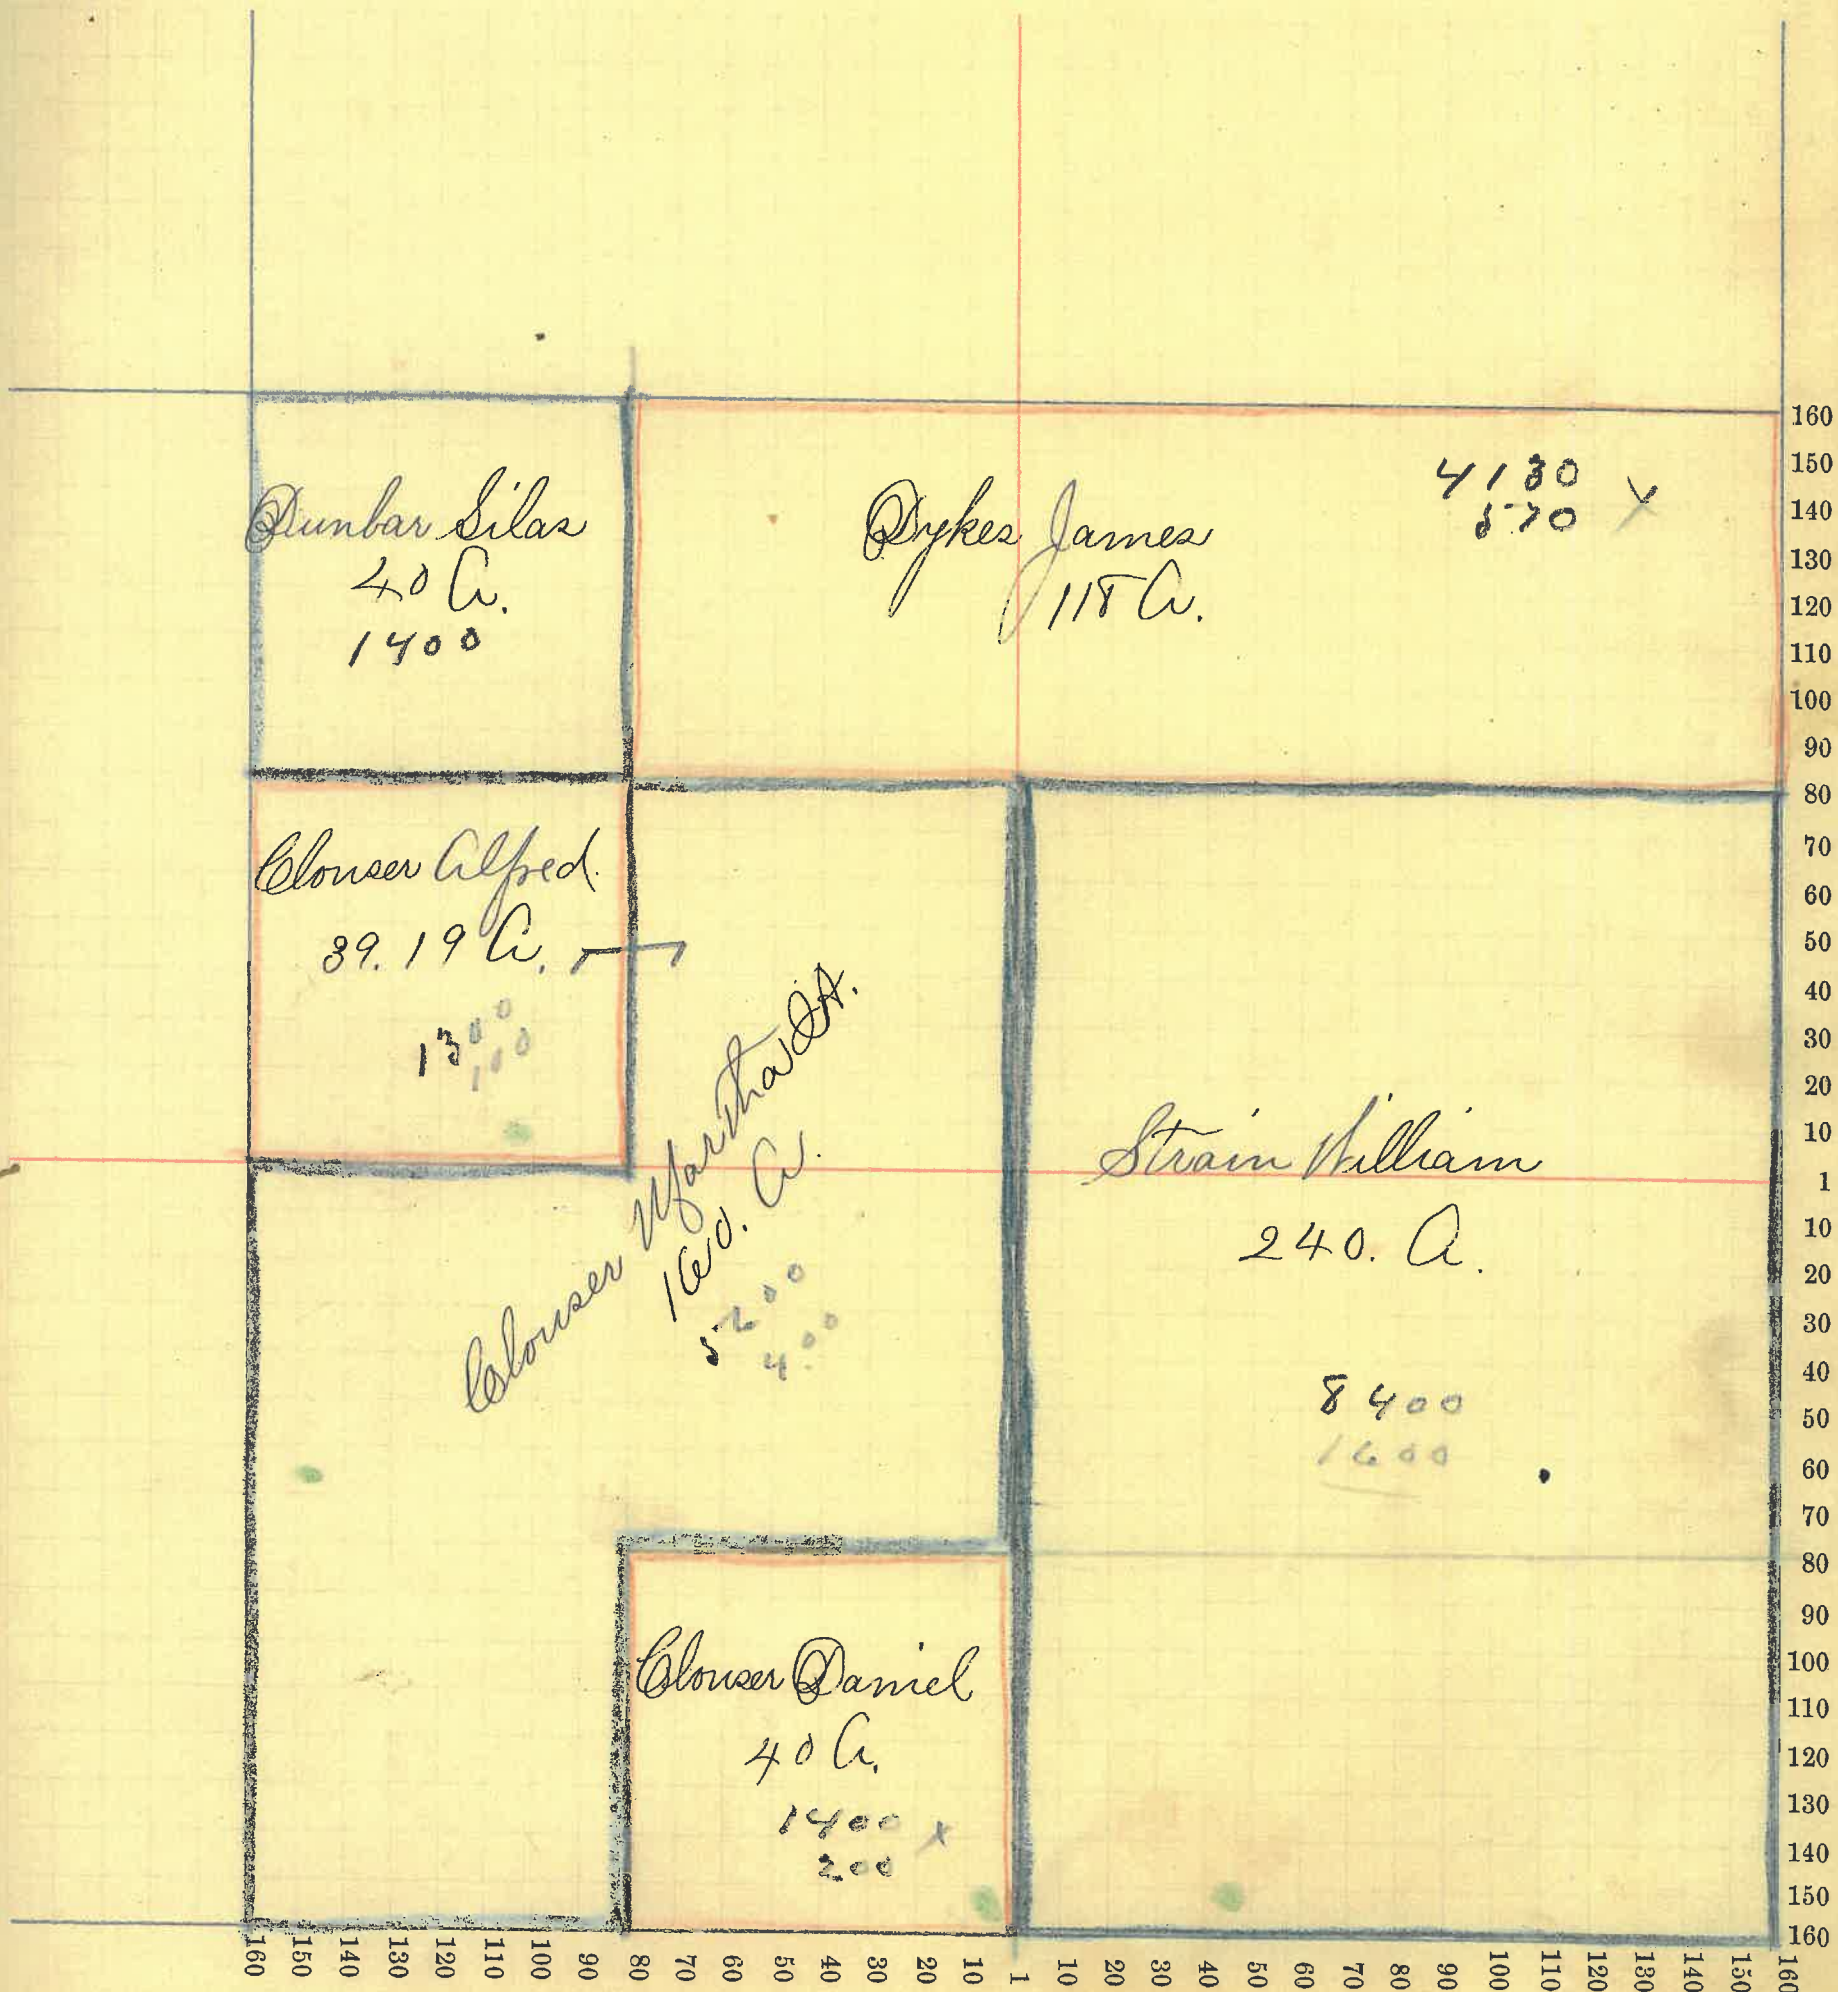 Dunbar Silas
40 A.
1400
Dykes James
118 A.
4130 x
570
Clouser Alfred.
39.19 A.
1300
100
Clouser Martha A.
160. A.
5200
400
Strain William
240. A.
8400
1600
Clouser Daniel
40 A.
1400 x
200
160
150
140
130
120
110
100
90
80
70
60
50
40
30
20
10
1
10
20
30
40
50
60
70
80
90
100
110
120
130
140
150
160
160 150 140 130 120 110 100 90 80 70 60 50 40 30 20 10 1 10 20 30 40 50 60 70 80 90 100 110 120 130 140 150 160